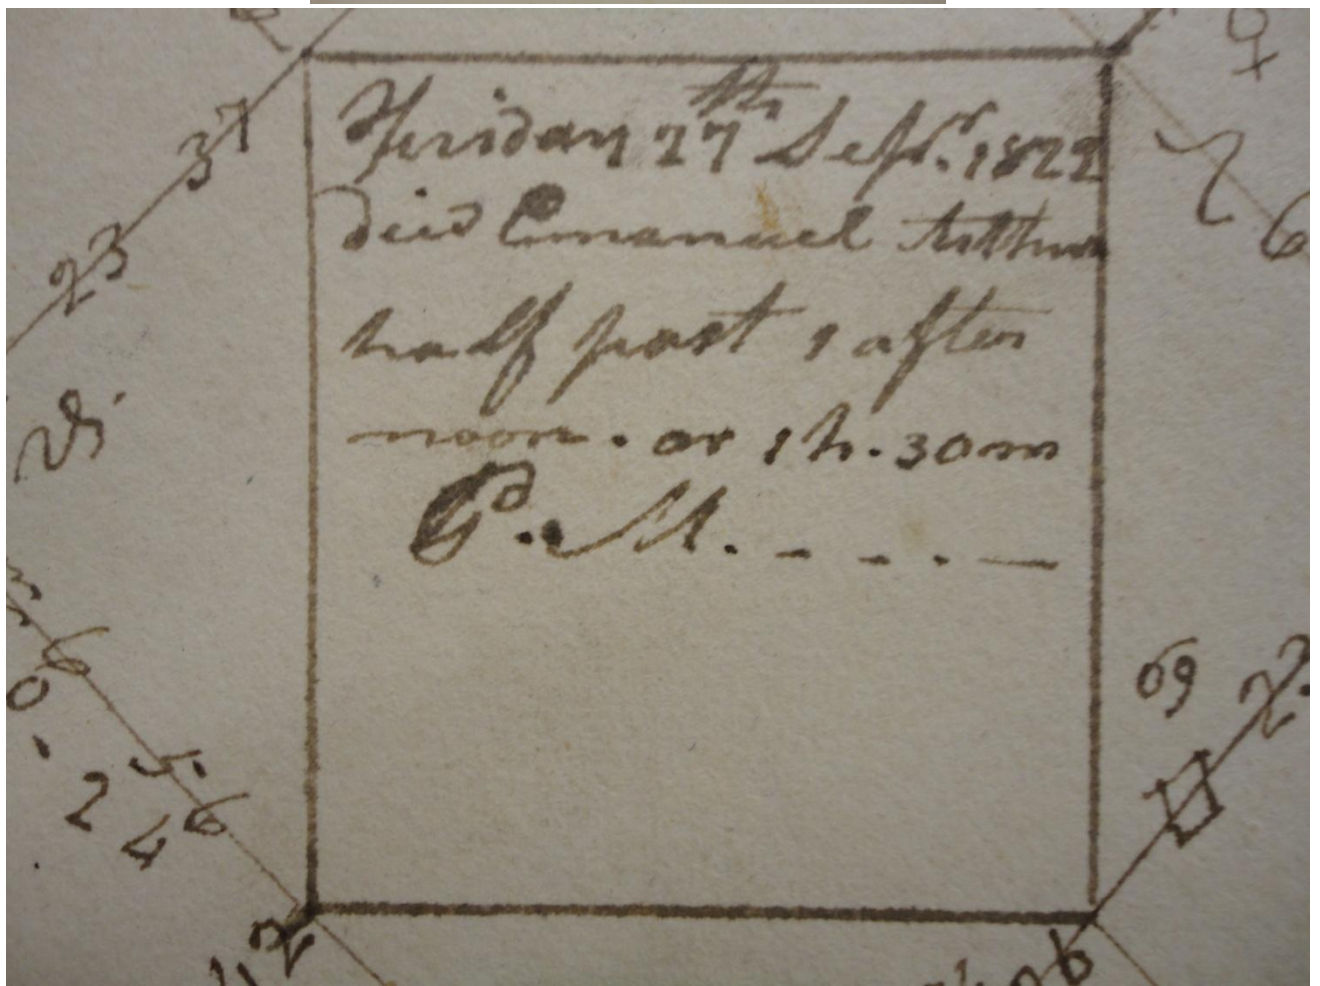 Friday 27th Sepr. 1822
died Emanuel Arthur
half past 1 after
noon. or 1h. 30m
P. M. - - . —
37
23
♀
6
69
♊
5.
6
2
4
12